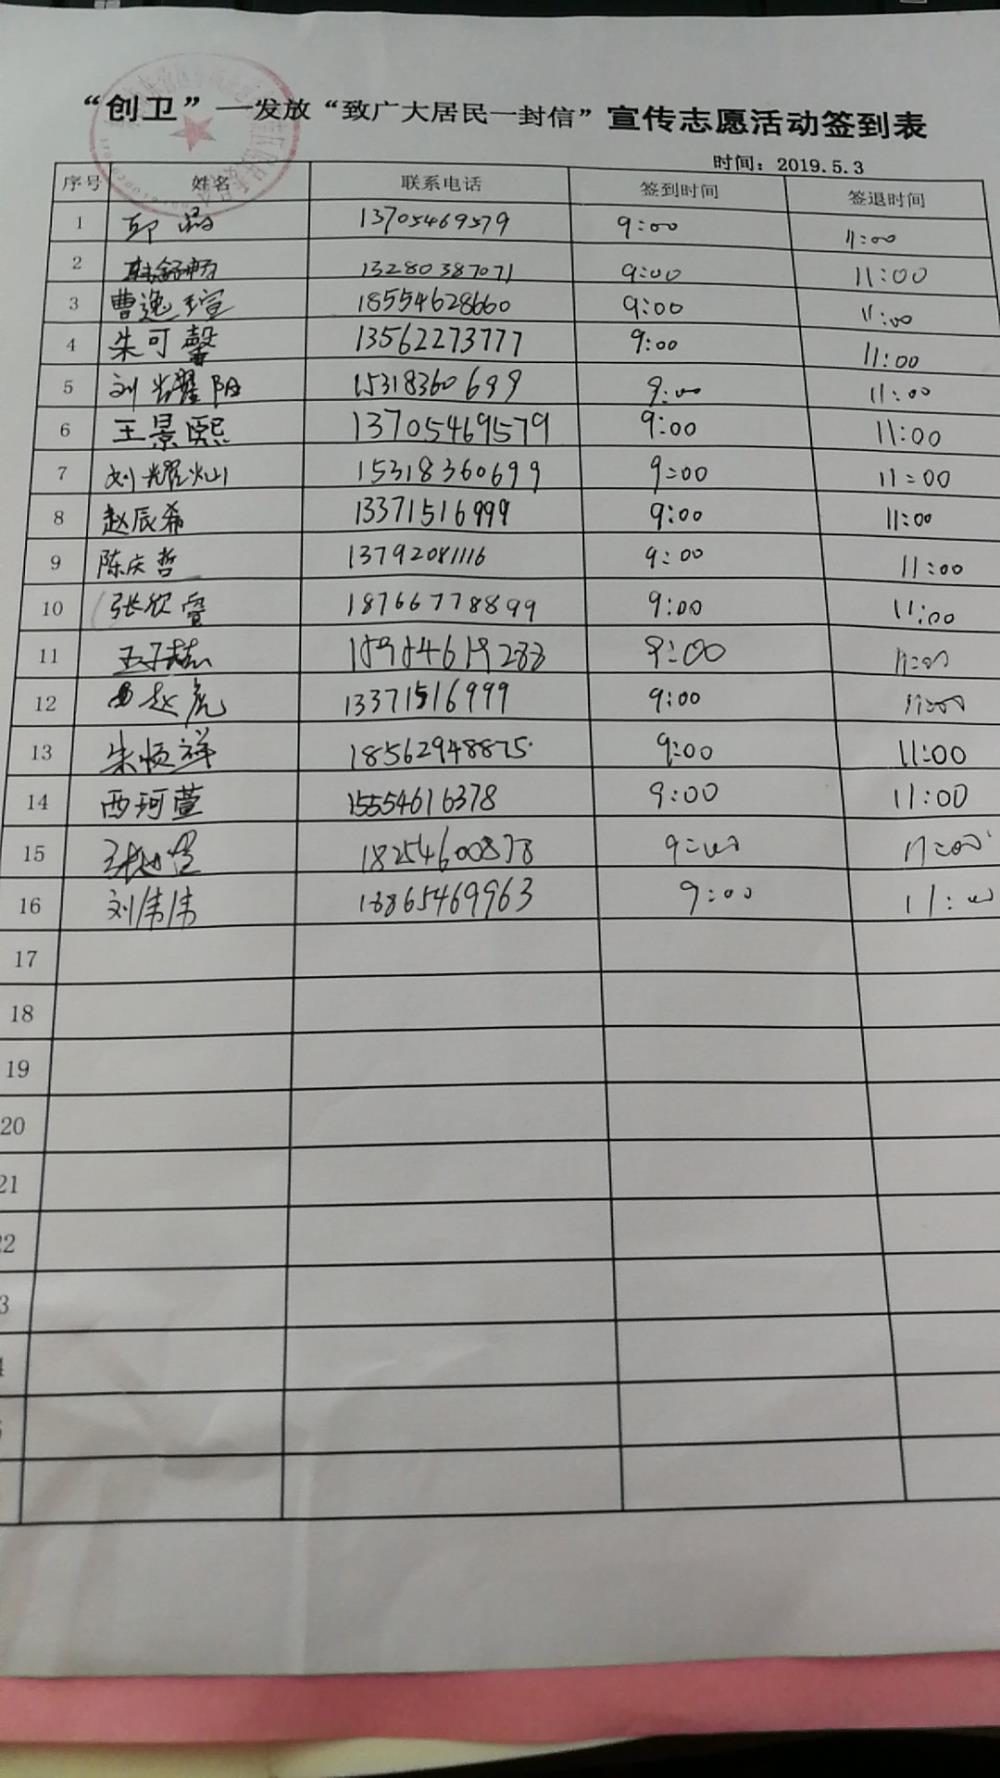 “创卫”—发放“致广大居民一封信”宣传志愿活动签到表
时间：2019.5.3
序号 姓名 联系电话 签到时间 签退时间
1 邱磊 13705469579 9:00 11:00
2 韩舒畅 13280387071 9:00 11:00
3 曹逸瑄 18554628660 9:00 11:00
4 朱可馨 13562273777 9:00 11:00
5 刘耀阳 15318360699 9:00 11:00
6 王景熙 13705469579 9:00 11:00
7 刘耀灿 15318360699 9:00 11:00
8 赵辰希 13371516999 9:00 11:00
9 陈庆哲 13792081116 9:00 11:00
10 张欣雪 18766778899 9:00 11:00
11 王子赫 18984619288 9:00 11:00
12 赵虎 13371516999 9:00 11:00
13 朱恒祥 18562948875 9:00 11:00
14 西珂萱 15554616378 9:00 11:00
15 18254600878 9:00 11:00
16 刘伟伟 13865469963 9:00 11:00
17
18
19
20
21
22
3